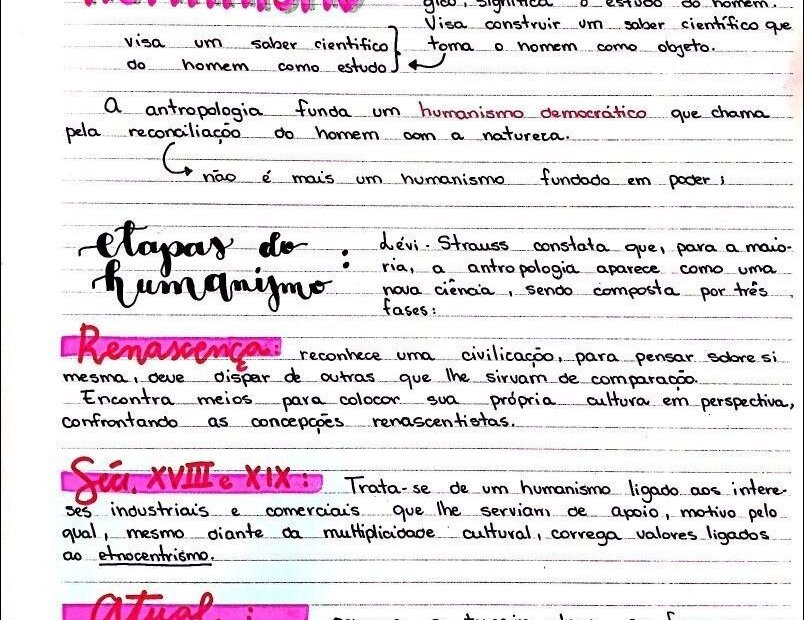 Humanismo
gico, significa o estudo do homem.
Visa construir um saber científico que
toma o homem como objeto.
visa um saber cientifico
do homem como estudo
A antropologia funda um humanismo democrático que chama
pela reconciliação do homem com a natureza.
não é mais um humanismo fundado em poder;
etapas do
humanismo :
Lévi-Strauss constata que, para a maio-
ria, a antropologia aparece como uma
nova ciência, sendo composta por três
fases:
Renascença: reconhece uma civilicação, para pensar sobre si
mesma, deve dispar de outras que lhe sirvam de comparação.
Encontra meios para colocar sua própria cultura em perspectiva,
confrontando as concepções renascentistas.
Séc. XVIII e XIX: Trata-se de um humanismo ligado aos intere-
ses industriais e comerciais que lhe serviam de apoio, motivo pelo
qual, mesmo diante da multiplicidade cultural, correga valores ligados
ao etnocentrismo.
Atual: